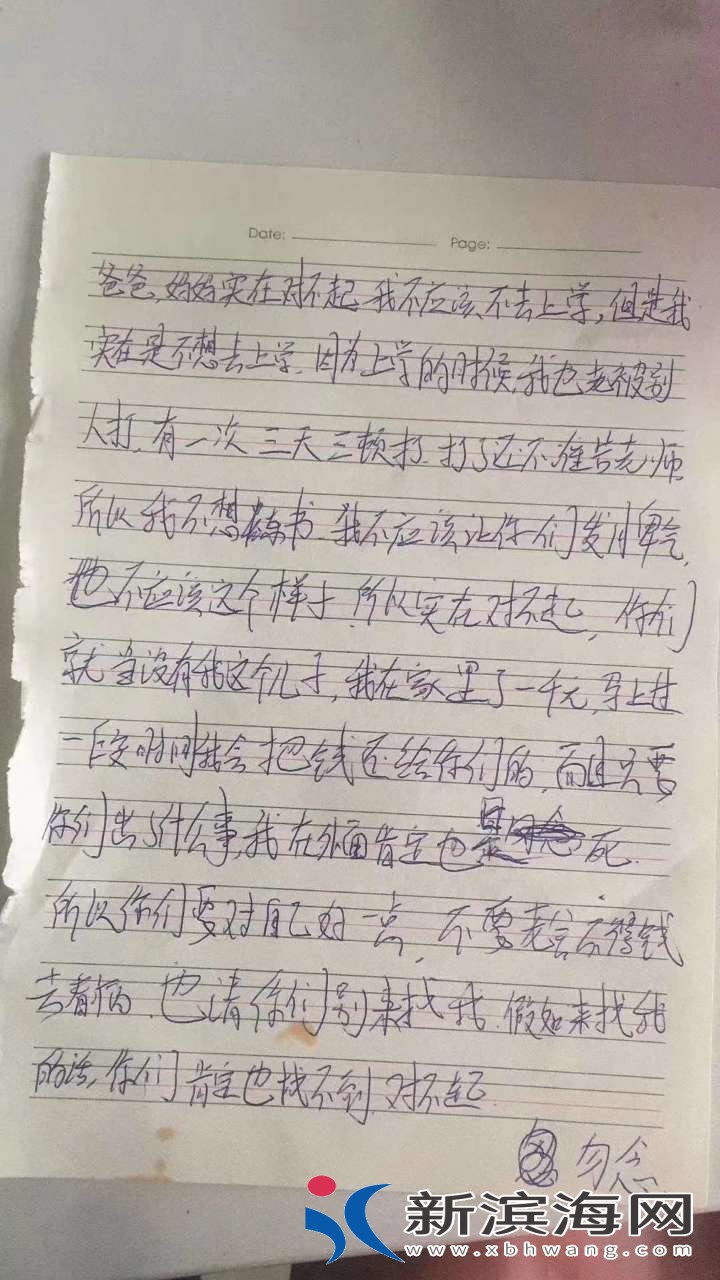 Date: Page:
爸爸,妈妈实在对不起 我不应该不去上学,但是我
实在是不想去上学.因为上学的时候,我也老被别
人打.有一次三天三顿打.打了还不准告老师
所以我不想读书.我不应该让你们发脾气,
也不应该这个样子.所以实在对不起,你们
就当没有我这个儿子,我在家里了一千元,马上过
一段时间我会把钱还给你们的,而且只要
你们出了什么事,我在外面肯定也是 死.
所以你们要对自己好一点,不要老舍不得钱
去看病.也请你们别来找我.假如来找我
的话,你们肯定也找不到 对不起.
勿念
新滨海网
www.xbhwang.com